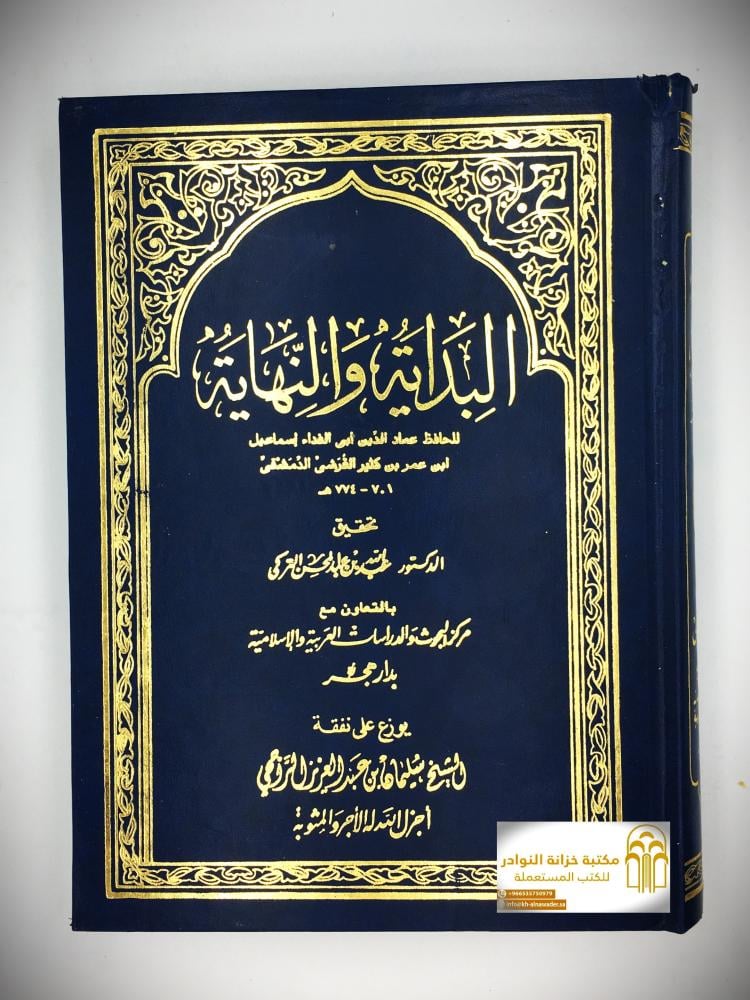 البِدَايَةُ وَالنِّهَايَةُ
للحافظ عماد الدين أبي الفداء إسماعيل
ابن عمر بن كثير القُرَشيّ الدّمشقيّ
٧٠١ - ٧٧٤ هـ
تحقيق
الدكتور عبد الله بن عبد المحسن التركي
بالتعاون مع
مركز البحوث والدراسات العربية والإسلامية
بدار هجر
يوزع على نفقة
الشيخ سليمان بن عبد العزيز الراجحي
أجزل الله له الأجر والمثوبة
مكتبة خزانة النوادر
للكتب المستعملة
+966535750979
info@kh-alnawader.sa